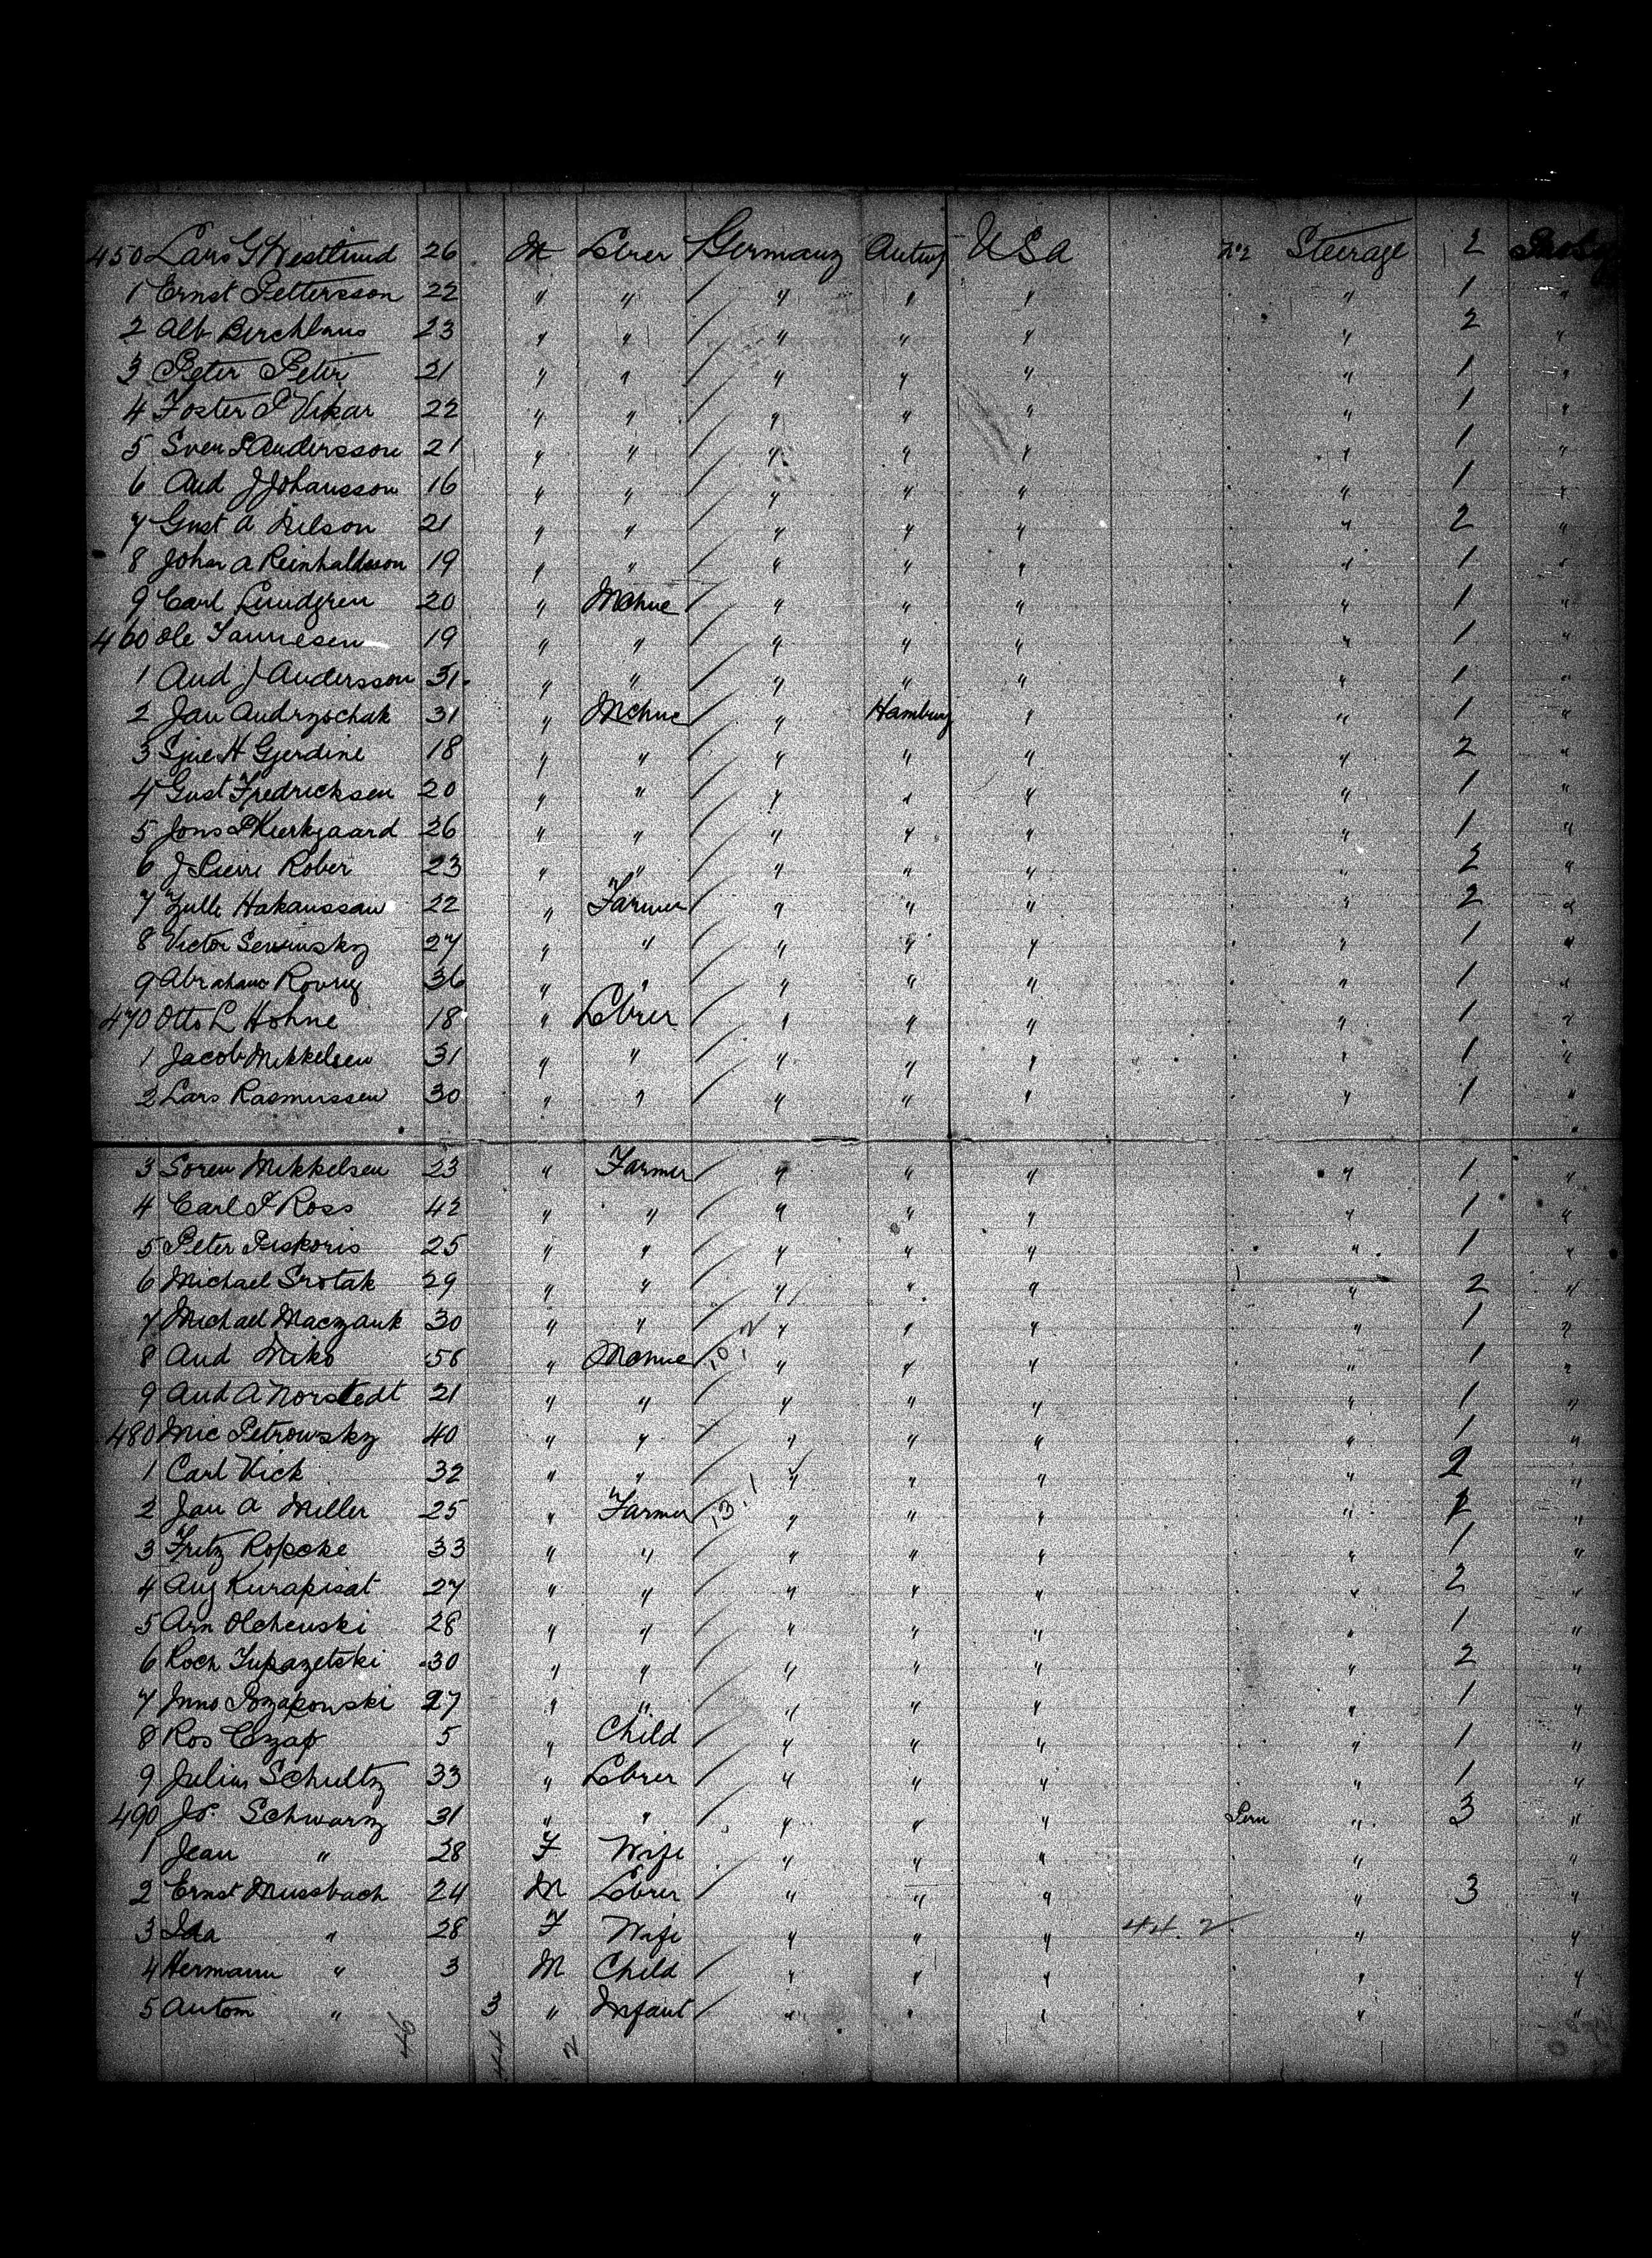 450 Lars G Westlund 26 M Lbrer Germany Antwp USA No2 Steerage 2
1 Ernst Pettersson 22 " " " " " " 1 "
2 Alb Berchlans 23 " " " " " " 2 "
3 Peter Peter 21 " " " " " " 1 "
4 Foster P Vikar 22 " " " " " " 1 "
5 Sven P Andersson 21 " " " " " " 1 "
6 And J Johansson 16 " " " " " " 1 "
7 Gust A Nilson 21 " " " " " " 2 "
8 Johan A Reinhaldsson 19 " " " " " " 1 "
9 Carl Lundgren 20 " Mchne " " " " 1 "
460 Ole Tannesen 19 " " " " " " 1 "
1 And J Andersson 31 " " " " " " 1 "
2 Jan Andrzschak 31 " Mchne " Hamburg " " 1 "
3 H Gjerdine 18 " " " " " " 2 "
4 Gust Fredricksen 20 " " " " " " 1 "
5 Jons P Kierkgaard 26 " " " " " " 1 "
6 J Pierre Rober 23 " " " " " " 2 "
7 Hakanssan 22 " Farmer " " " " 2 "
8 Victor Serwinsky 27 " " " " " " 1 "
9 Abraham 36 " " " " " " 1 "
470 Otto L Hohne 18 " Lbrer " " " " 1 "
1 Jacob Mikkelsen 31 " " " " " " 1 "
2 Lars Rasmussen 30 " " " " " " 1 "
3 Soren Mikkelsen 23 " Farmer " " " " 1 "
4 Carl F Ross 42 " " " " " " 1 "
5 Peter Piskoris 25 " " " " " " 1 "
6 Michael Srotak 29 " " " " " " 2 "
7 Michael Maczank 30 " " " " " " 1 "
8 And Miko 56 " Mchne " " " " 1 "
9 And A Norstedt 21 " " " " " " 1 "
480 Mic Petrowsky 40 " " " " " " 1 "
1 Carl Vick 32 " " " " " " 2 "
2 Jan A Miller 25 " Farmer 13.1 " " " " "
3 Fritz Ropcke 33 " " " " " " 1 "
4 Aug Kurapisat 27 " " " " " " 2 "
5 Arn Olchenski 28 " " " " " " 1 "
6 Roch Tupazetski 30 " " " " " " 2 "
7 27 " " " " " " 1 "
8 Ros Czap 5 " Child " " " " 1 "
9 Julius Schultz 33 " Lbrer " " " " 1 "
490 Js. Schwarz 31 " " " " " " 3 "
1 Jean " 28 F Wife " " " " "
2 Ernst Mussbach 24 M Lbrer " " " " 3 "
3 Ida " 28 F Wife " " " 44.2 " "
4 Hermann " 3 M Child " " " " "
5 Antom " 3 " Infant " " " " "
46 44 2